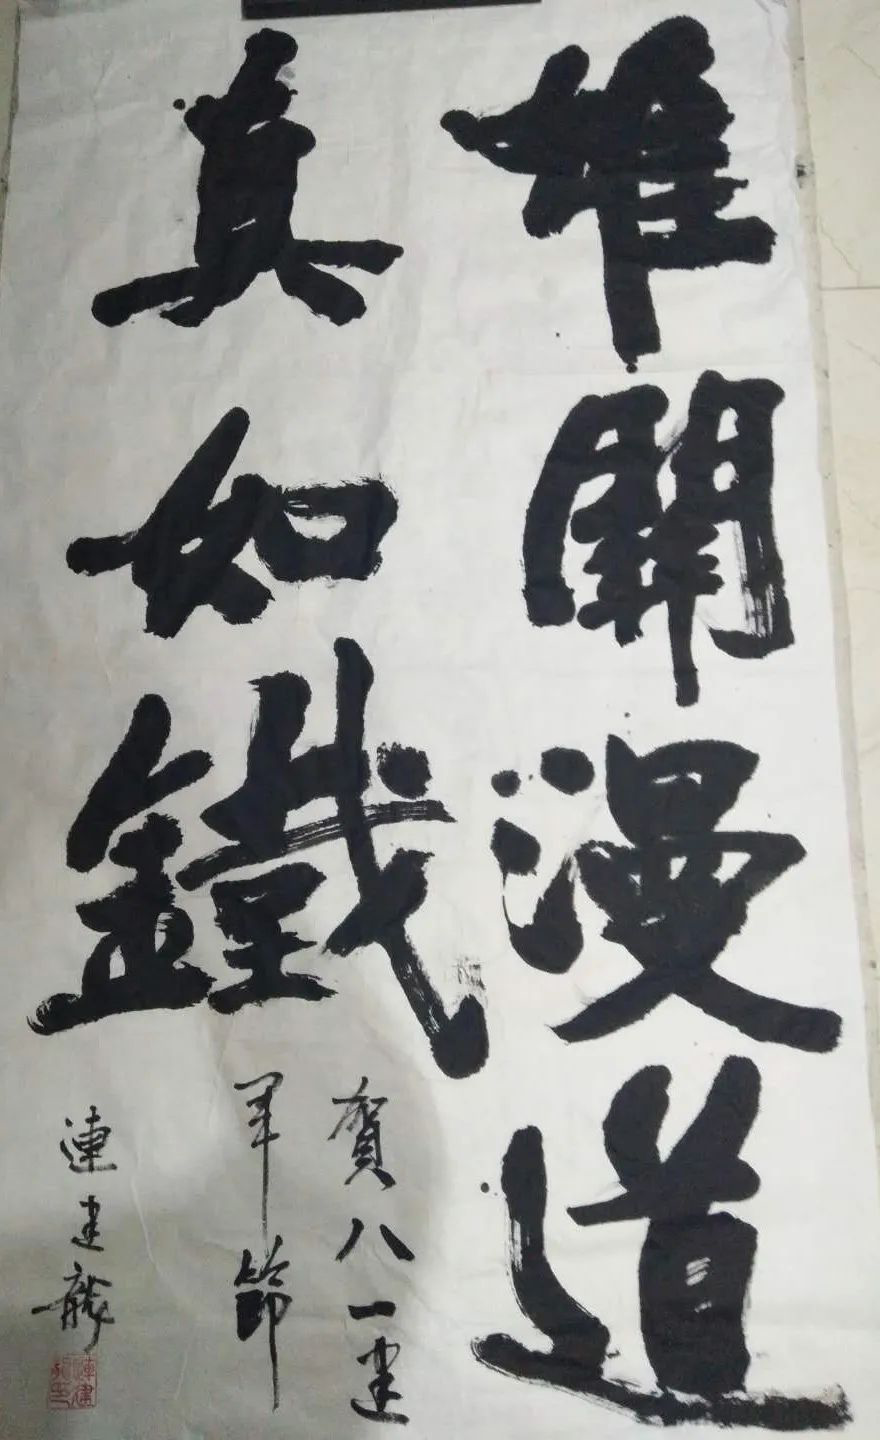 雄關漫道
真如鐵
賀八一建
軍節
連建龍
連建
龍印